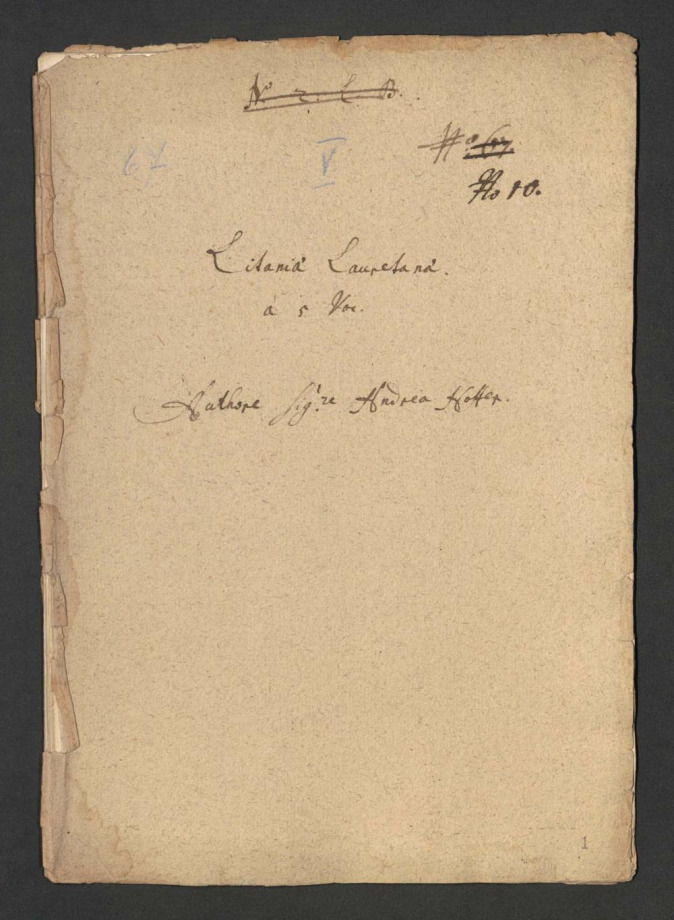 N. 2. C. B.
V
No 67.
No 10.
Litaniä Lauretanä.
à 5 Voc.
Authore Sig.re Andrea Hoffer.
1